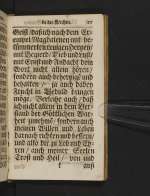 in der Kirchen.
Geist / daß ich nach dem Ex-
empel Magdalenen mit be-
mit Begierd / Lieb und Lust /
mit Ernst und Andacht dein
Wort nicht allein hören /
sondern auch behertzig und
behalten / ja auch dabey
Krafft in Gedult bringen
möge. Verleihe auch / daß
ich nicht allein in dem Ver-
stand der Göttlichen War-
heit zunehme / sondern auch
meinen Willen und Leben
darnach richten und bessern /
und also dir zu Lob und Eh-
ren / auch meiner Seelen
Trost und Heil / von und
auß